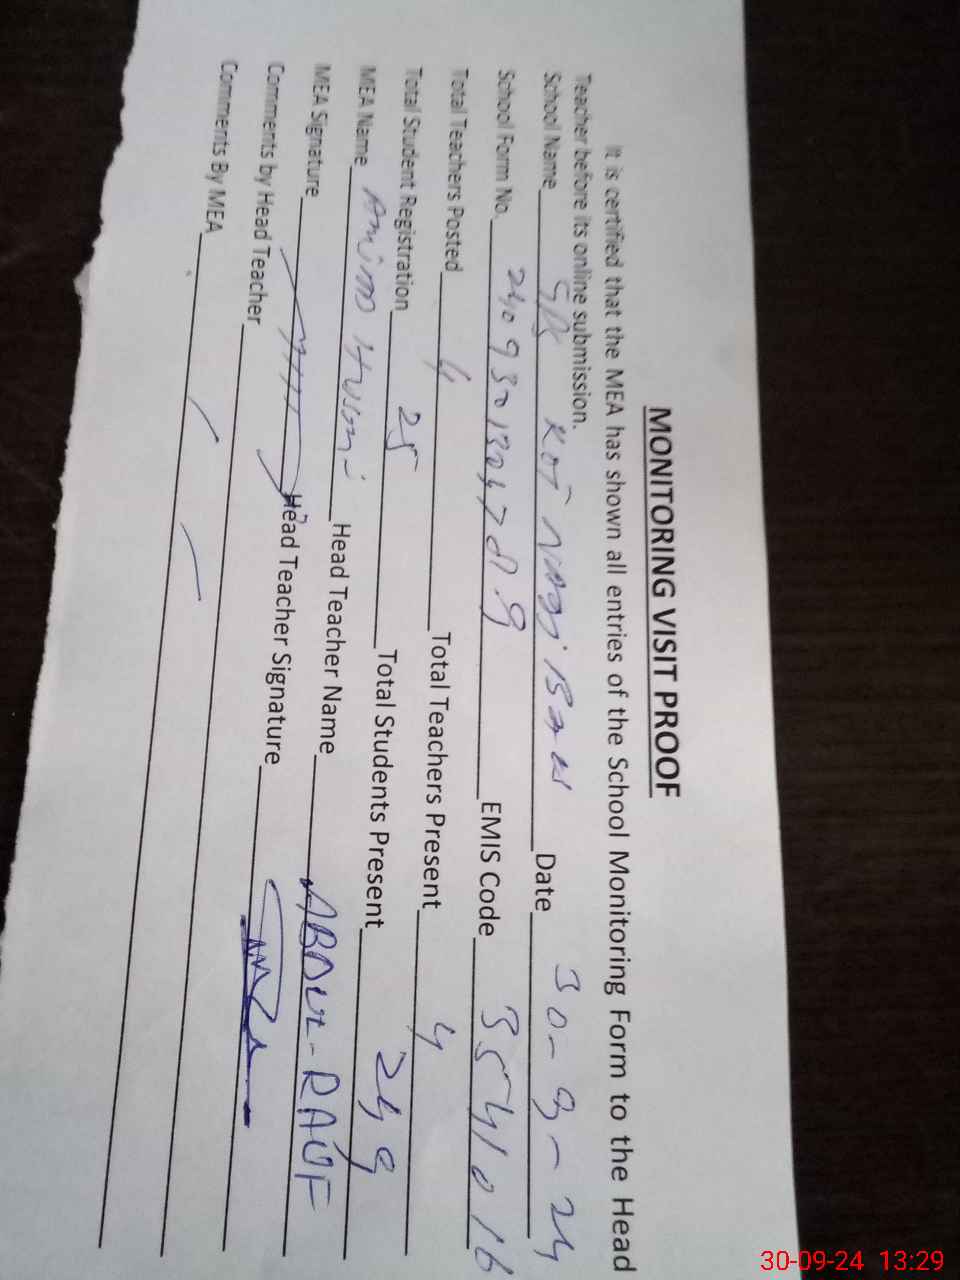 MONITORING VISIT PROOF
It is certified that the MEA has shown all entries of the School Monitoring Form to the Head
Teacher before its online submission.
School Name KOT Date 30-9-24
School Form No. EMIS Code 3541016
Total Teachers Posted 4 Total Teachers Present 4
Total Student Registration 25 Total Students Present 249
MEA Name Head Teacher Name ABDUL-RAUF
MEA Signature Head Teacher Signature
Comments by Head Teacher
Comments By MEA
30-09-24 13:29